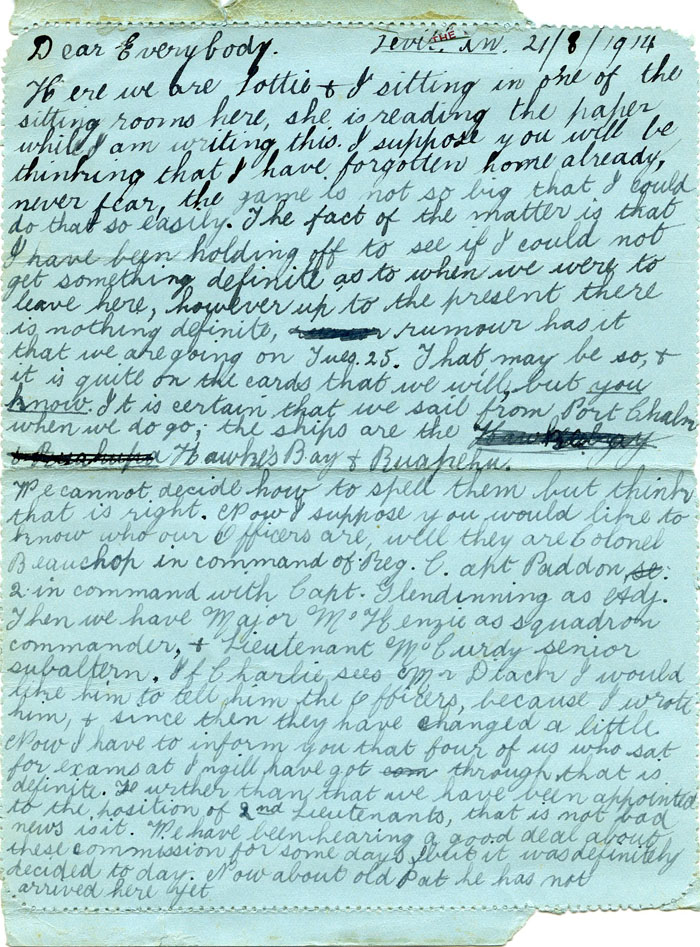 Dear Everybody. 21/8/1914
THE
Here we are Lottie & I sitting in one of the
sitting rooms here, she is reading the paper
while I am writing this. I suppose you will be
thinking that I have forgotten home already,
never fear, the game is not so big that I could
do that so easily. The fact of the matter is that
I have been holding off to see if I could not
get something definite as to when we were to
leave here, however up to the present there
is nothing definite, rumour has it
that we are going on Tues. 25. That may be so, &
it is quite on the cards that we will, but you
know. It is certain that we sail from Port Chalm
when we do go; the ships are the
Hawkes Bay & Ruapehu.
We cannot decide how to spell them but think
that is right. Now I suppose you would like to
know who our Officers are, well they are Colonel
Beauchop in command of Reg. Capt Paddon
2 in command with Capt. Glendinning as Adj.
Then we have Major McKenzie as squadron
commander, & Lieutenant McCurdy senior
subaltern. If Charlie sees Mr I would
like him to tell him the Officers, because I wrote
him, & since then they have changed a little.
Now I have to inform you that four of us who sat
for exams at Ingill have got through, that is
definite. Further than that we have been appointed
to the position of 2nd Lieutenants, that is not bad
news is it. We have been hearing a good deal about
these commission for some days, but it was definitely
decided to day. Now about old Pat he has not
arrived here yet